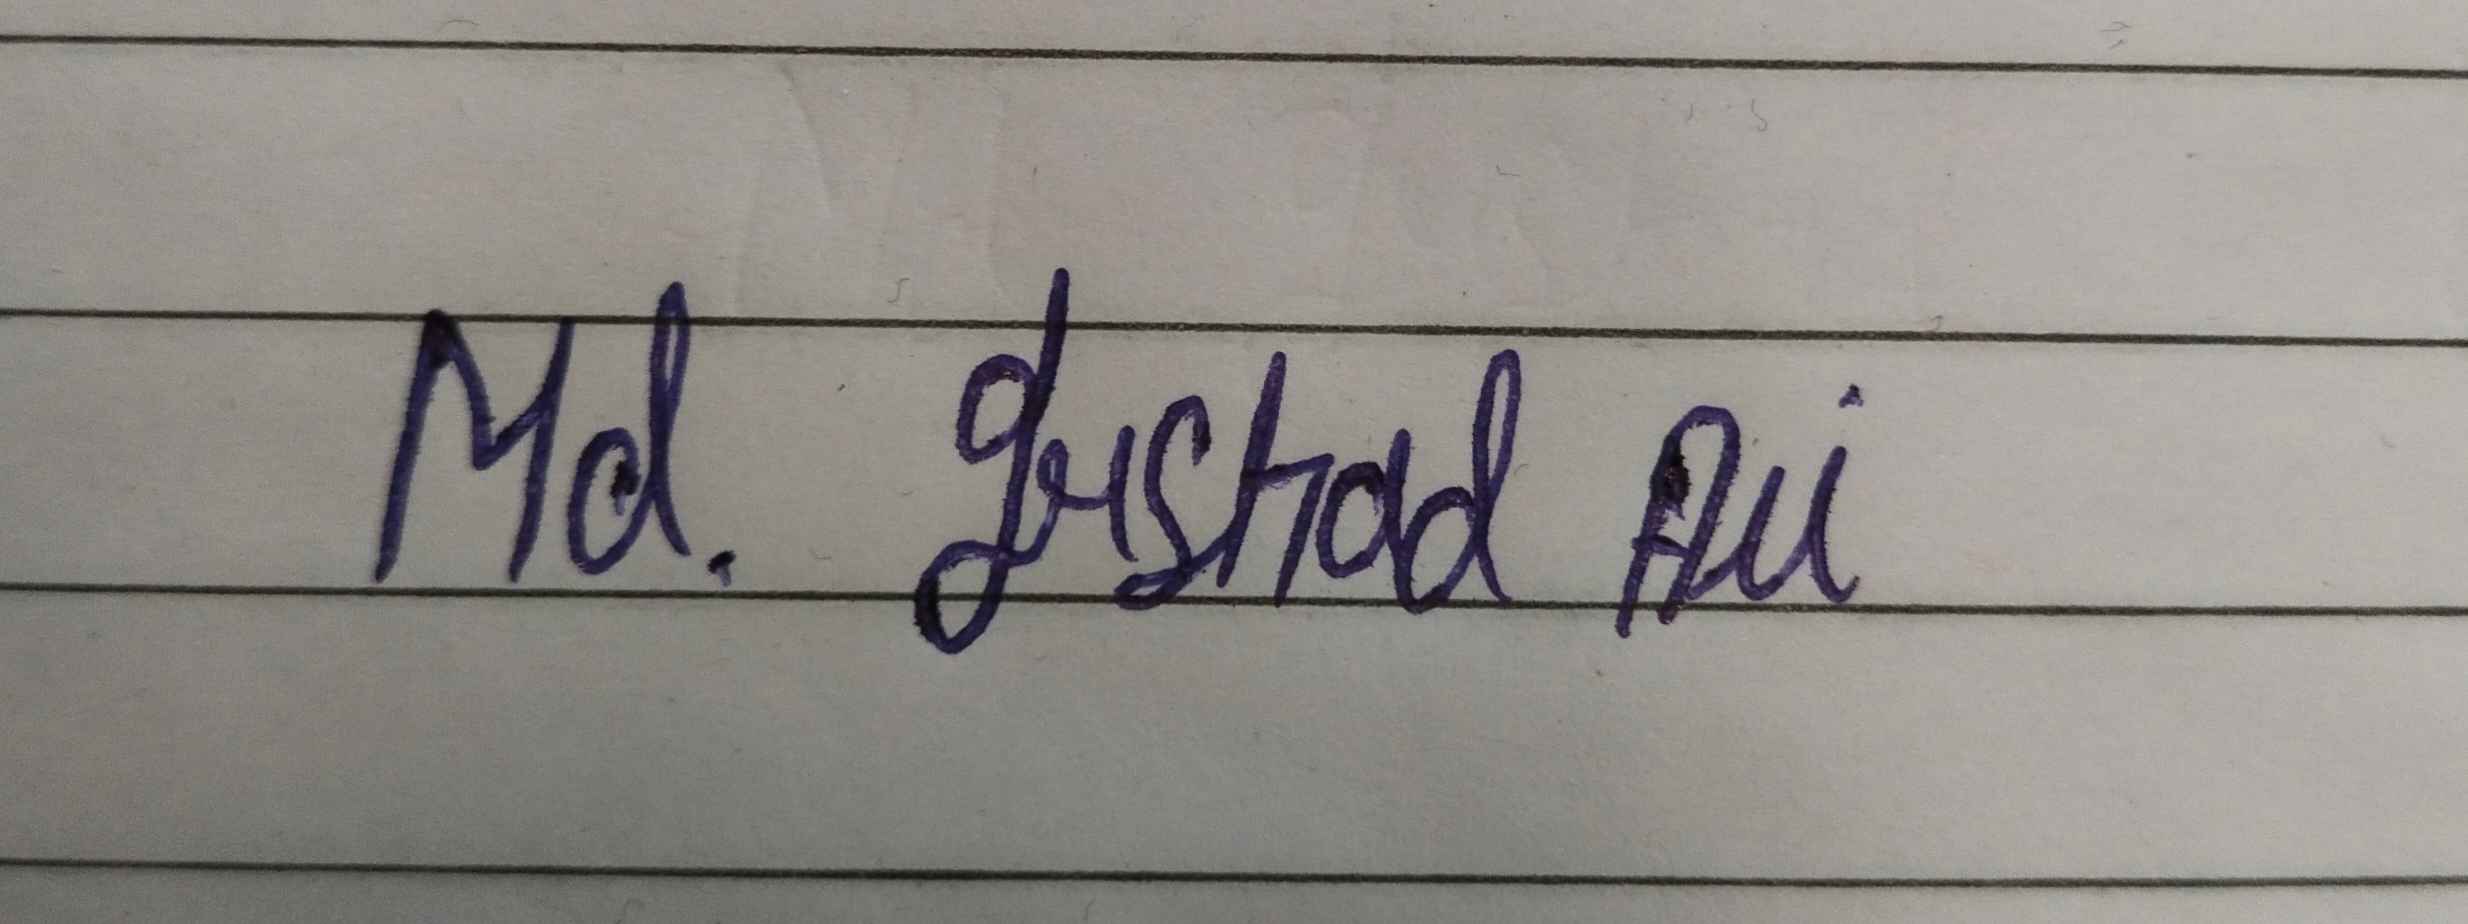 Md. Irshad Ali